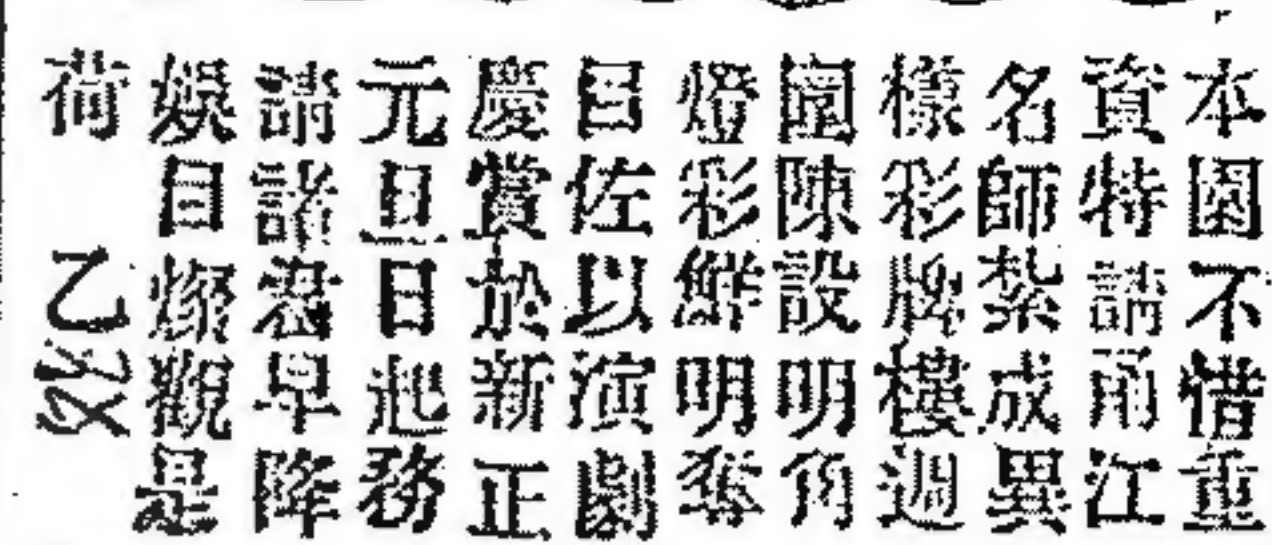 本園不惜重
資特請甬江
名師紮成異
樣彩牌樓週
圍陳設明角
燈彩鮮明奪
目佐以演劇
慶賞於新正
元旦日起務
請諸君早降
娛目燦觀是
荷 乙